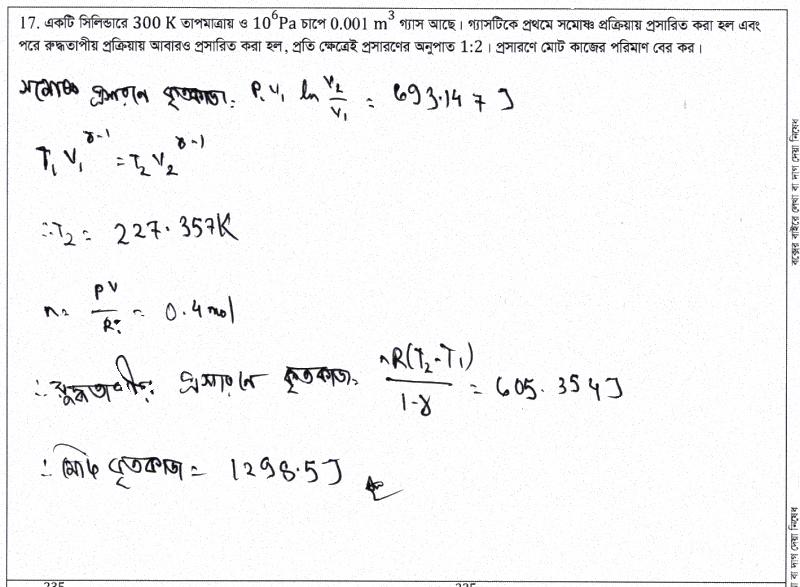 17. একটি সিলিন্ডারে 300 K তাপমাত্রায় ও 10⁶Pa চাপে 0.001 m³ গ্যাস আছে। গ্যাসটিকে প্রথমে সমোষ্ণ প্রক্রিয়ায় প্রসারিত করা হল এবং
পরে রুদ্ধতাপীয় প্রক্রিয়ায় আবারও প্রসারিত করা হল, প্রতি ক্ষেত্রেই প্রসারণের অনুপাত 1:2। প্রসারণে মোট কাজের পরিমাণ বের কর।
সমোষ্ণ প্রসারনে কৃতকাজ = P₁V₁ ln V₂/V₁ = 693.147 J
T₁V₁^γ-1 = T₂V₂^γ-1
∴T₂ = 227.357K
n = PV/RT = 0.4 mol
∴ রুদ্ধতাপীয় প্রসারনে কৃতকাজ = nR(T₂-T₁)/1-γ = 605.354J
∴ মোট কৃতকাজ = 1298.5J
বক্সের বাইরে লেখা বা দাগ দেয়া নিষেধ
বা দাগ দেয়া নিষেধ